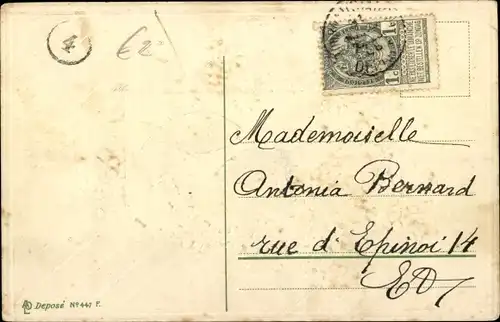 4
€2
1c
1c
Mademoiselle
Antonia Bernard
rue d'Epinoi 14
EV
Deposé Nº 447 F.